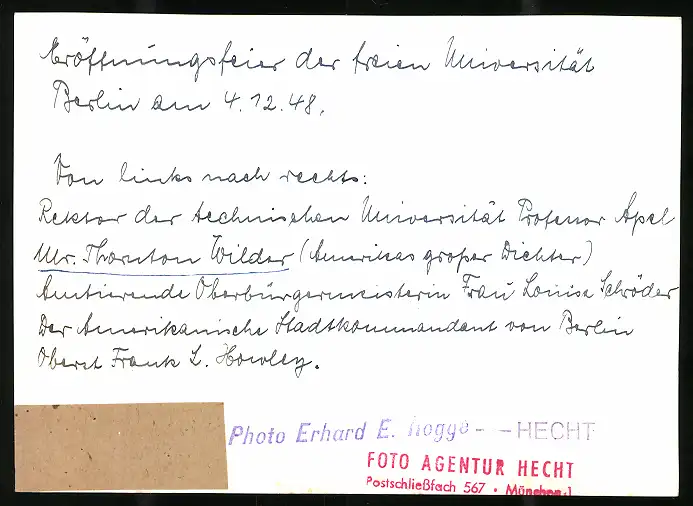 Eröffnungsfeier der freien Universität
Berlin am 4.12.48.
Von links nach rechts:
Rektor der technischen Universität Professor Apel
Mr. Thornton Wilder (Amerikas großer Dichter)
Amtierende Oberbürgermeisterin Frau Louise Schröder
Der Amerikanische Stadtkommandant von Berlin
Oberst Frank L. Howley.
Photo Erhard E. Rogge - - HECHT
FOTO AGENTUR HECHT
Postschließfach 567 · München-1